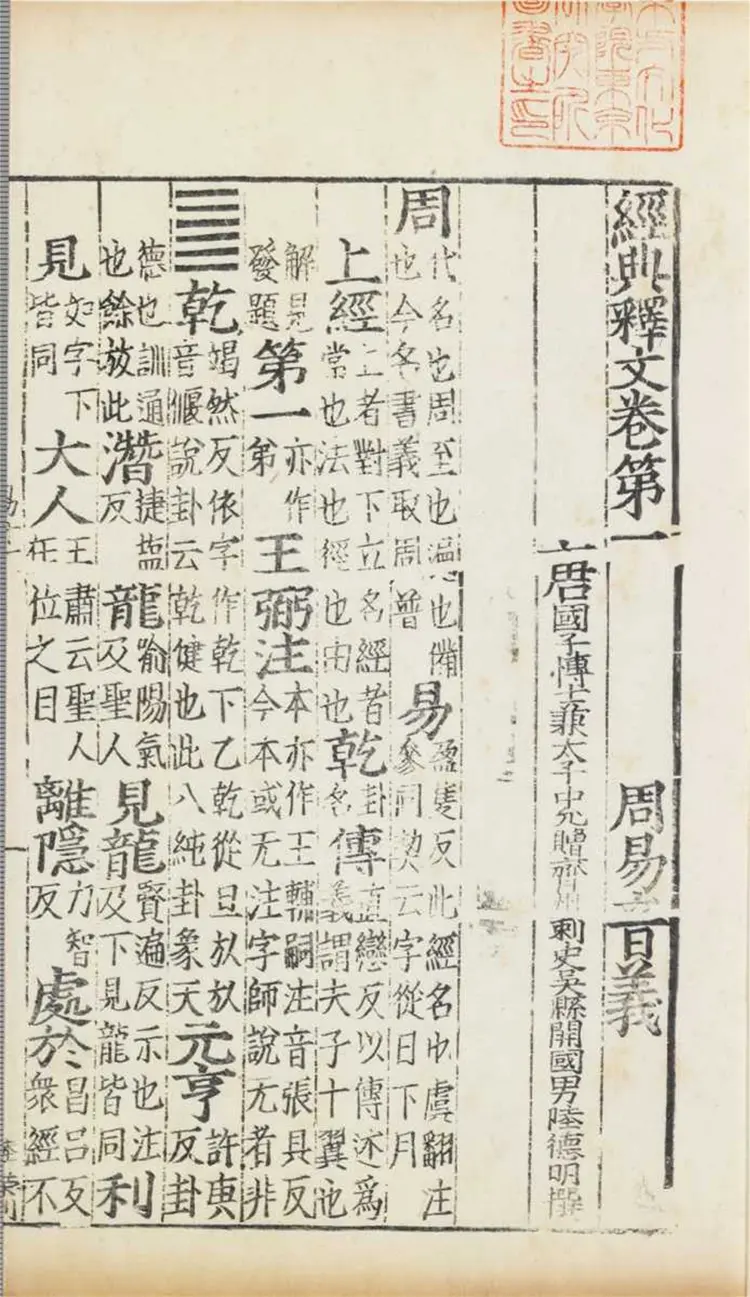 經典釋文卷第一 周易音義
唐國子博士兼太子中允贈齊州刺史吳縣開國男陸德明撰
周代名也周至也遍也備也今名書義取周普易盈隻反此經名也虞翻注參同契云字從日下月
上經上者對下立名經者常也法也經也由也乾卦名傳直戀反以傳述爲義謂夫子十翼也
解見發題第一亦作弟王弼注本亦作王輔嗣注音張具反今本或无注字師說无者非
䷀乾竭然反依字作乾下乙乾從旦㫃㫃音偃說卦云乾健也此八純卦象天元亨許庚反卦
德也訓通也餘放此潛捷鹽反龍喻陽氣及聖人見龍賢遍反示也注及下見龍皆同利
見如字下皆同大人王肅云聖人在位之目離隱力智反處於昌呂反衆經不